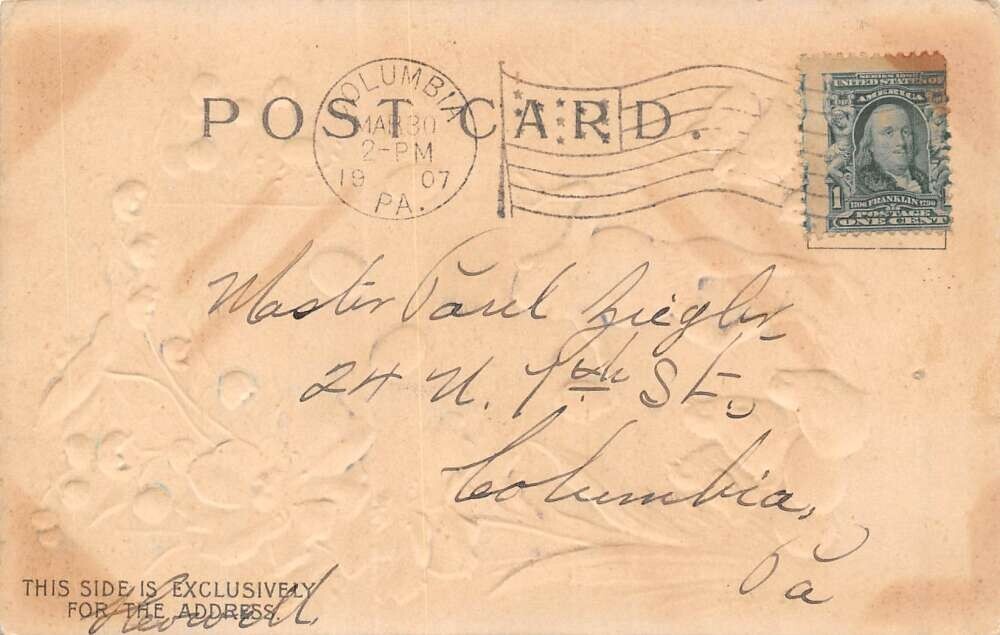 POST CARD.
COLUMBIA
MAR 30
2-PM
19 07
PA.
UNITED STATES OF
AMERICA
1
FRANKLIN
POSTAGE
ONE CENT
Master Paul Ziegler
24 N. 7th St.
Columbia,
Pa
THIS SIDE IS EXCLUSIVELY
FOR THE ADDRESS.